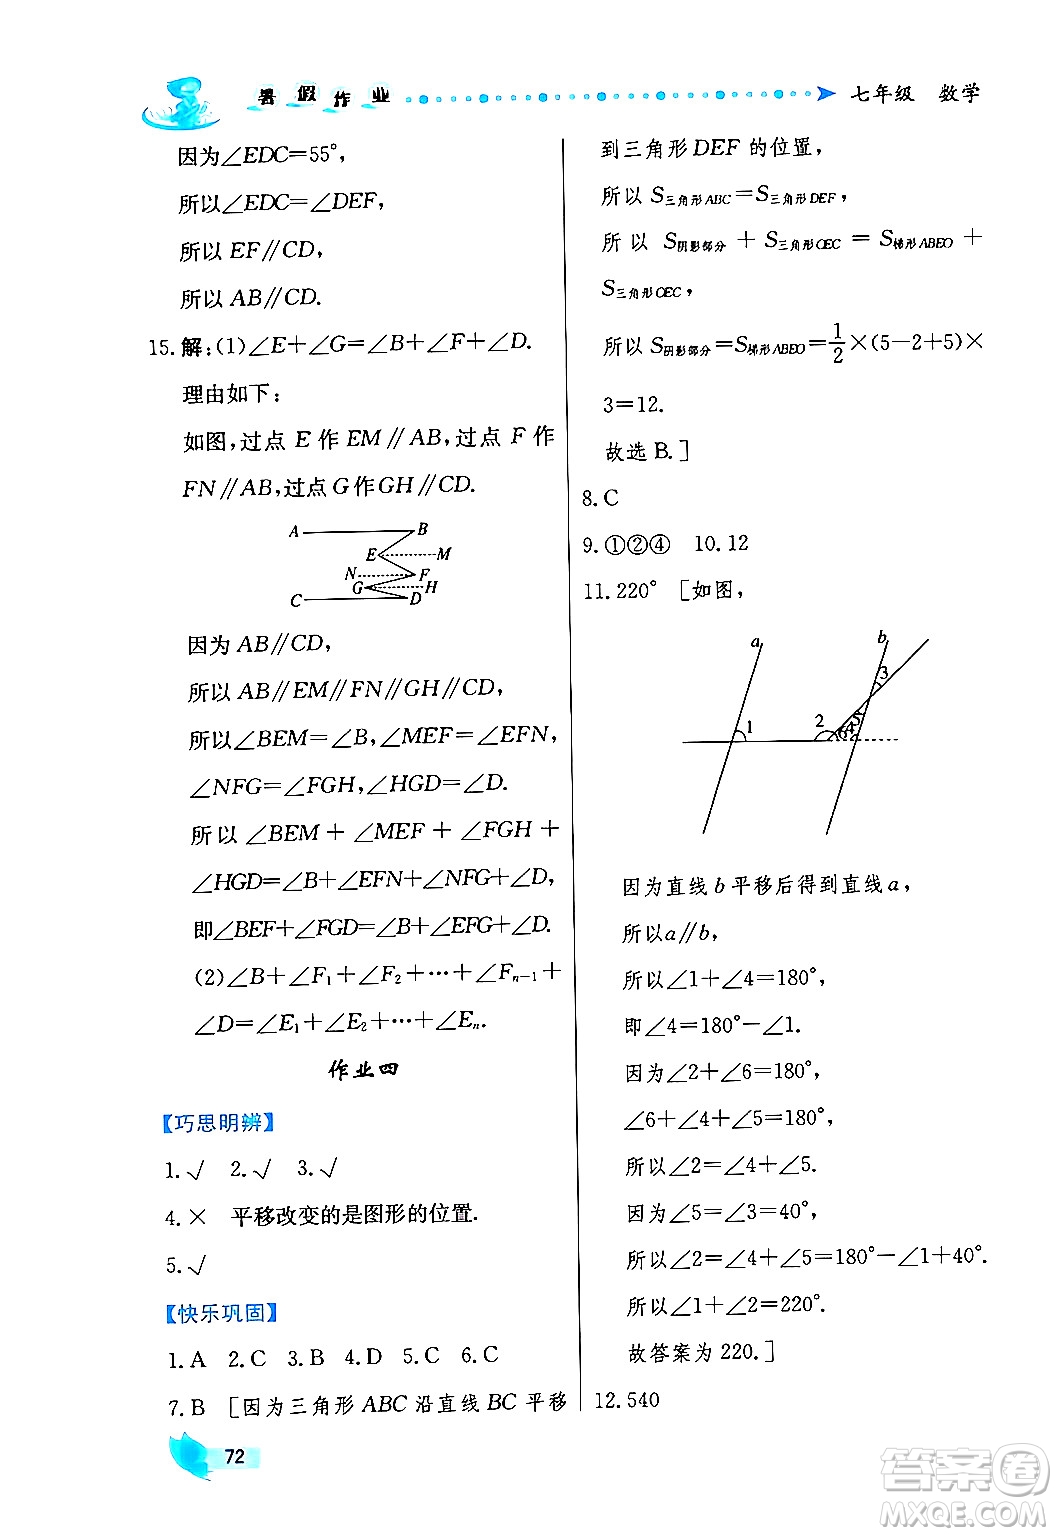 暑假作业
七年级 数学
因为∠EDC=55°,
所以∠EDC=∠DEF,
所以 EF∥CD,
所以 AB∥CD.
15.解:(1)∠E+∠G=∠B+∠F+∠D.
理由如下:
如图,过点 E 作 EM∥AB,过点 F 作
FN∥AB,过点 G 作 GH∥CD.
A B
E M
N F
G H
C D
因为 AB∥CD,
所以 AB∥EM∥FN∥GH∥CD,
所以∠BEM=∠B,∠MEF=∠EFN,
∠NFG=∠FGH,∠HGD=∠D.
所以 ∠BEM + ∠MEF + ∠FGH +
∠HGD=∠B+∠EFN+∠NFG+∠D,
即∠BEF+∠FGD=∠B+∠EFG+∠D.
(2)∠B+∠F₁+∠F₂+…+∠Fₙ₋₁+
∠D=∠E₁+∠E₂+…+∠Eₙ.
作业四
【巧思明辨】
1.√ 2.√ 3.√
4.× 平移改变的是图形的位置.
5.√
【快乐巩固】
1.A 2.C 3.B 4.D 5.C 6.C
7.B [因为三角形 ABC 沿直线 BC 平移
72
到三角形 DEF 的位置,
所以 S三角形ABC=S三角形DEF,
所以 S阴影部分 + S三角形OEC = S梯形ABEO +
S三角形OEC,
所以 S阴影部分=S梯形ABEO=1/2×(5-2+5)×
3=12.
故选 B.]
8.C
9.①②④ 10.12
11.220° [如图,
a b
3
1 2 5
6 4
因为直线 b 平移后得到直线 a,
所以 a∥b,
所以∠1+∠4=180°,
即∠4=180°-∠1.
因为∠2+∠6=180°,
∠6+∠4+∠5=180°,
所以∠2=∠4+∠5.
因为∠5=∠3=40°,
所以∠2=∠4+∠5=180°-∠1+40°.
所以∠1+∠2=220°.
故答案为 220.]
12.540
答案圈
MXQE.COM